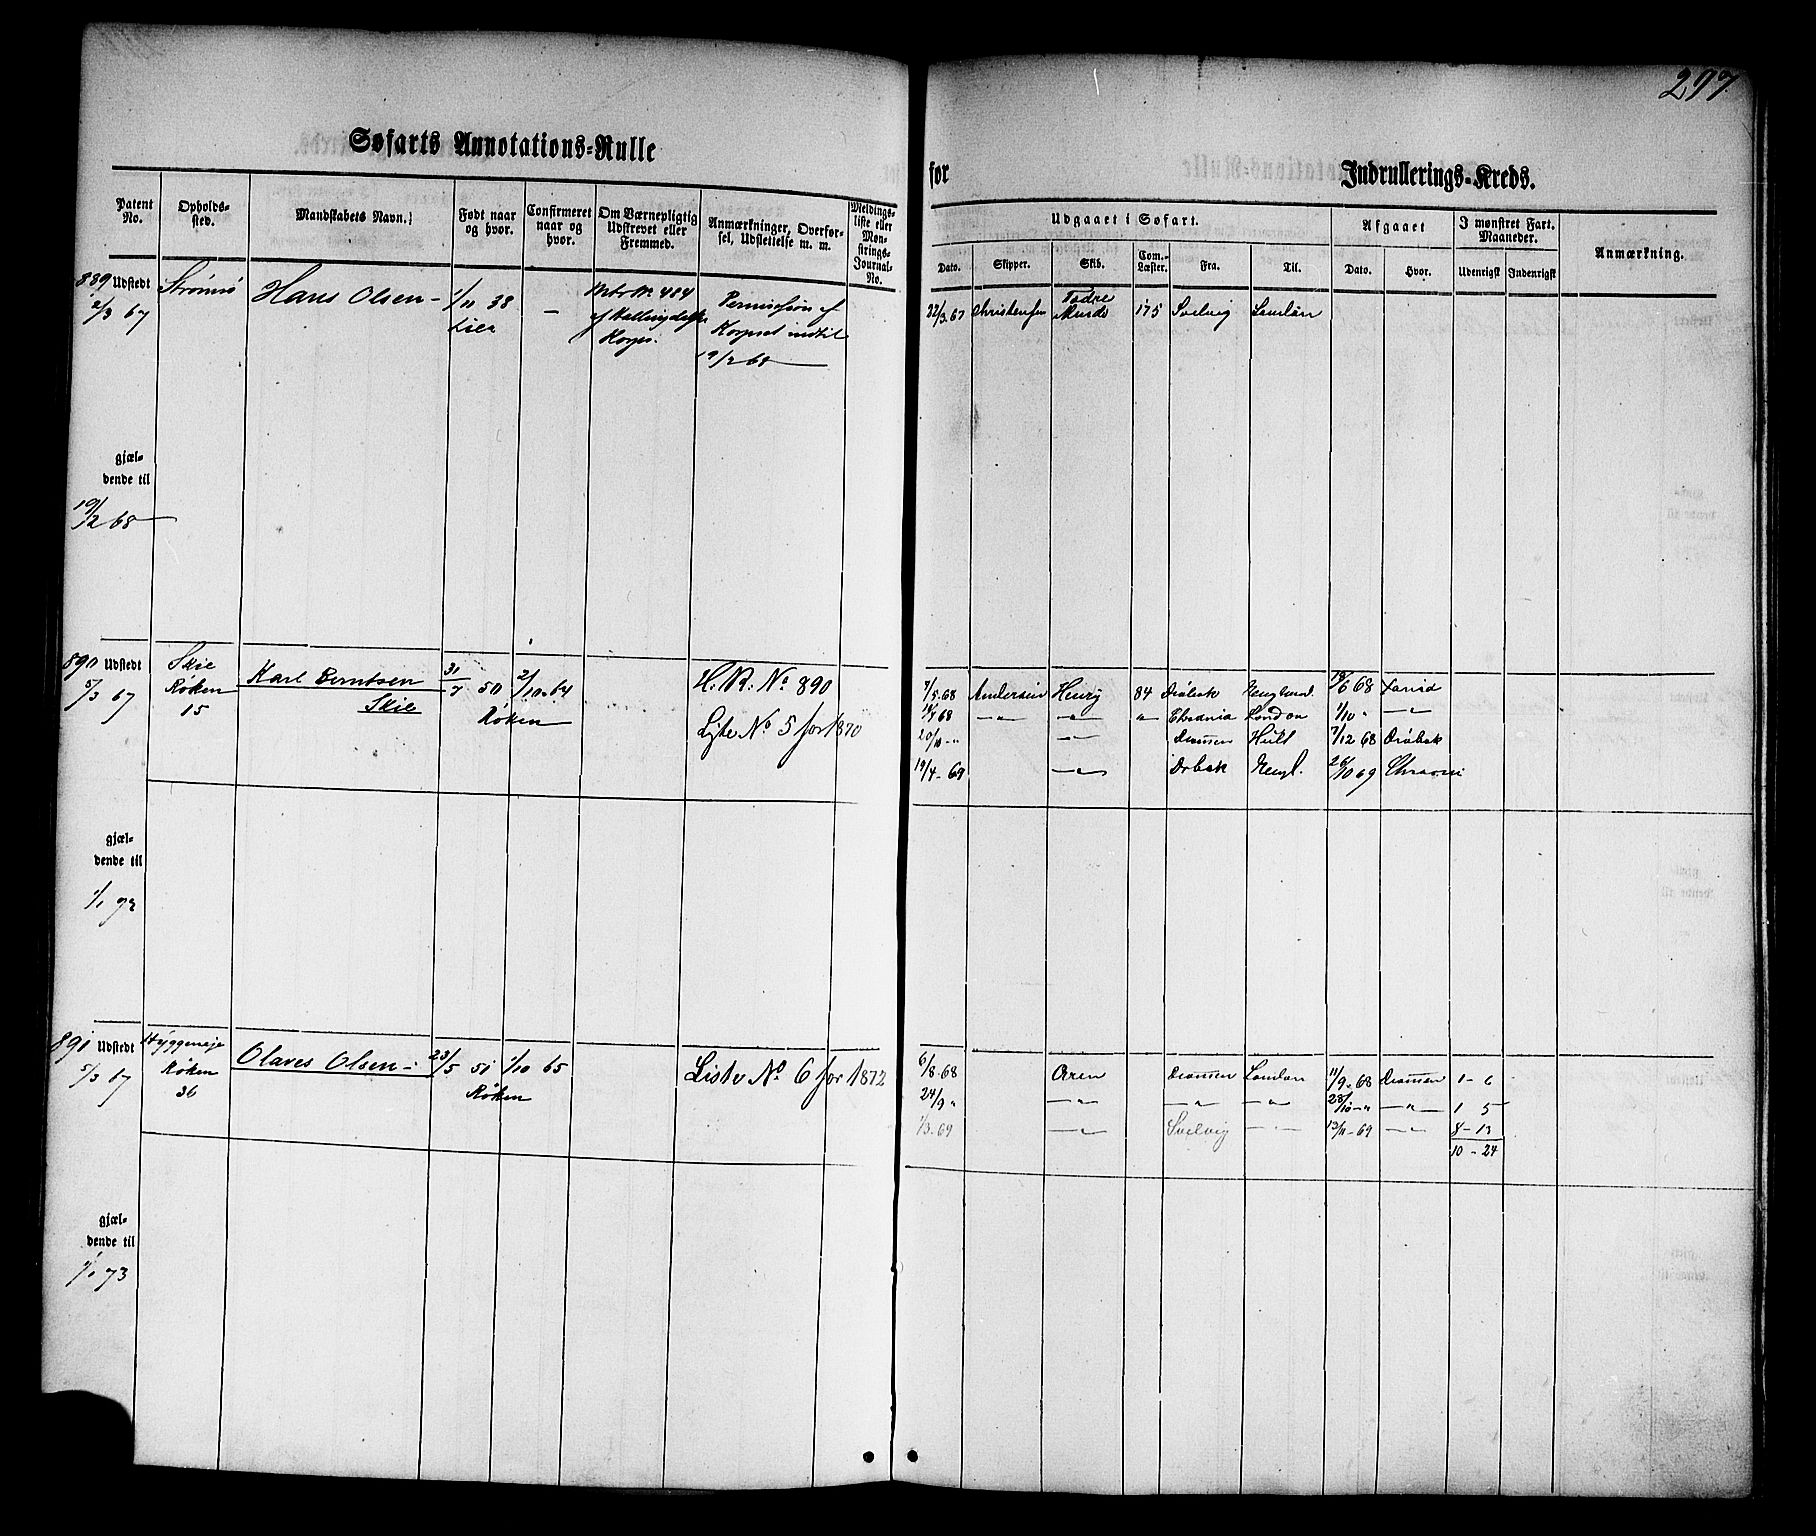 297
Søfarts Annotations-Rulle
for Indrullerings-Kreds.
Patent No. Opholds-sted. Mandskabets Navn. Født naar og hvor. Confirmeret naar og hvor. Om Værnepligtig Udskrevet eller Fremmed. Anmærkninger, Overførsel, Udslettelse m. m. Meldingsliste eller Mønstrings-Journal-No.
Udgaaet i Søfart. Afgaaet I mønstret Fart. Maaneder. Anmærkning.
Dato. Skipper. Skib. Com.-Læster. Fra. Til. Dato. Hvor. Udenrigsk Indenrigsk
889 Udstedt Strømsø Hans Olsen - 1/11 38 — No. 484 Permission af 22/3 67 Christensen 175 Svelvig London
2/3 67 Lier af Hallingdalske Korpset indtil
Korps. 19/2 68
gjæl-
dende til
19/2 68
890 Udstedt Skie Karl Berntsen 31/7 50 2/10 64 H. R. No 890 7/5 68 Andersen Henry 84 Drøbak Engeland. 6 68
5/3 67 Røken Skie Røken Liste No 5 for 1870 68 —„— —„— „ London 1/10 „ —„—
15 20/10 -„ —„— Drammen Hull 7/12 68 Drøbak
19/4 - 69 —„— Engl. 26/10 69
gjæl-
dende til
1/1 72
891 Udstedt Hyggeneje Olaves Olsen - 23/5 51 1/10 65 Liste No 6 for 1872 6/8 68 Drammen London 11/9 68 Drammen 1 - 6
5/3 67 Røken Røken 24/9 „ —„— —„— —„— 28/10 „ —„— 1 5
36 1/3 69 —„— Svelvig —„— 13/11 - 69 —„— 8 - 13
10 - 24
gjæl-
dende til
1/1 73